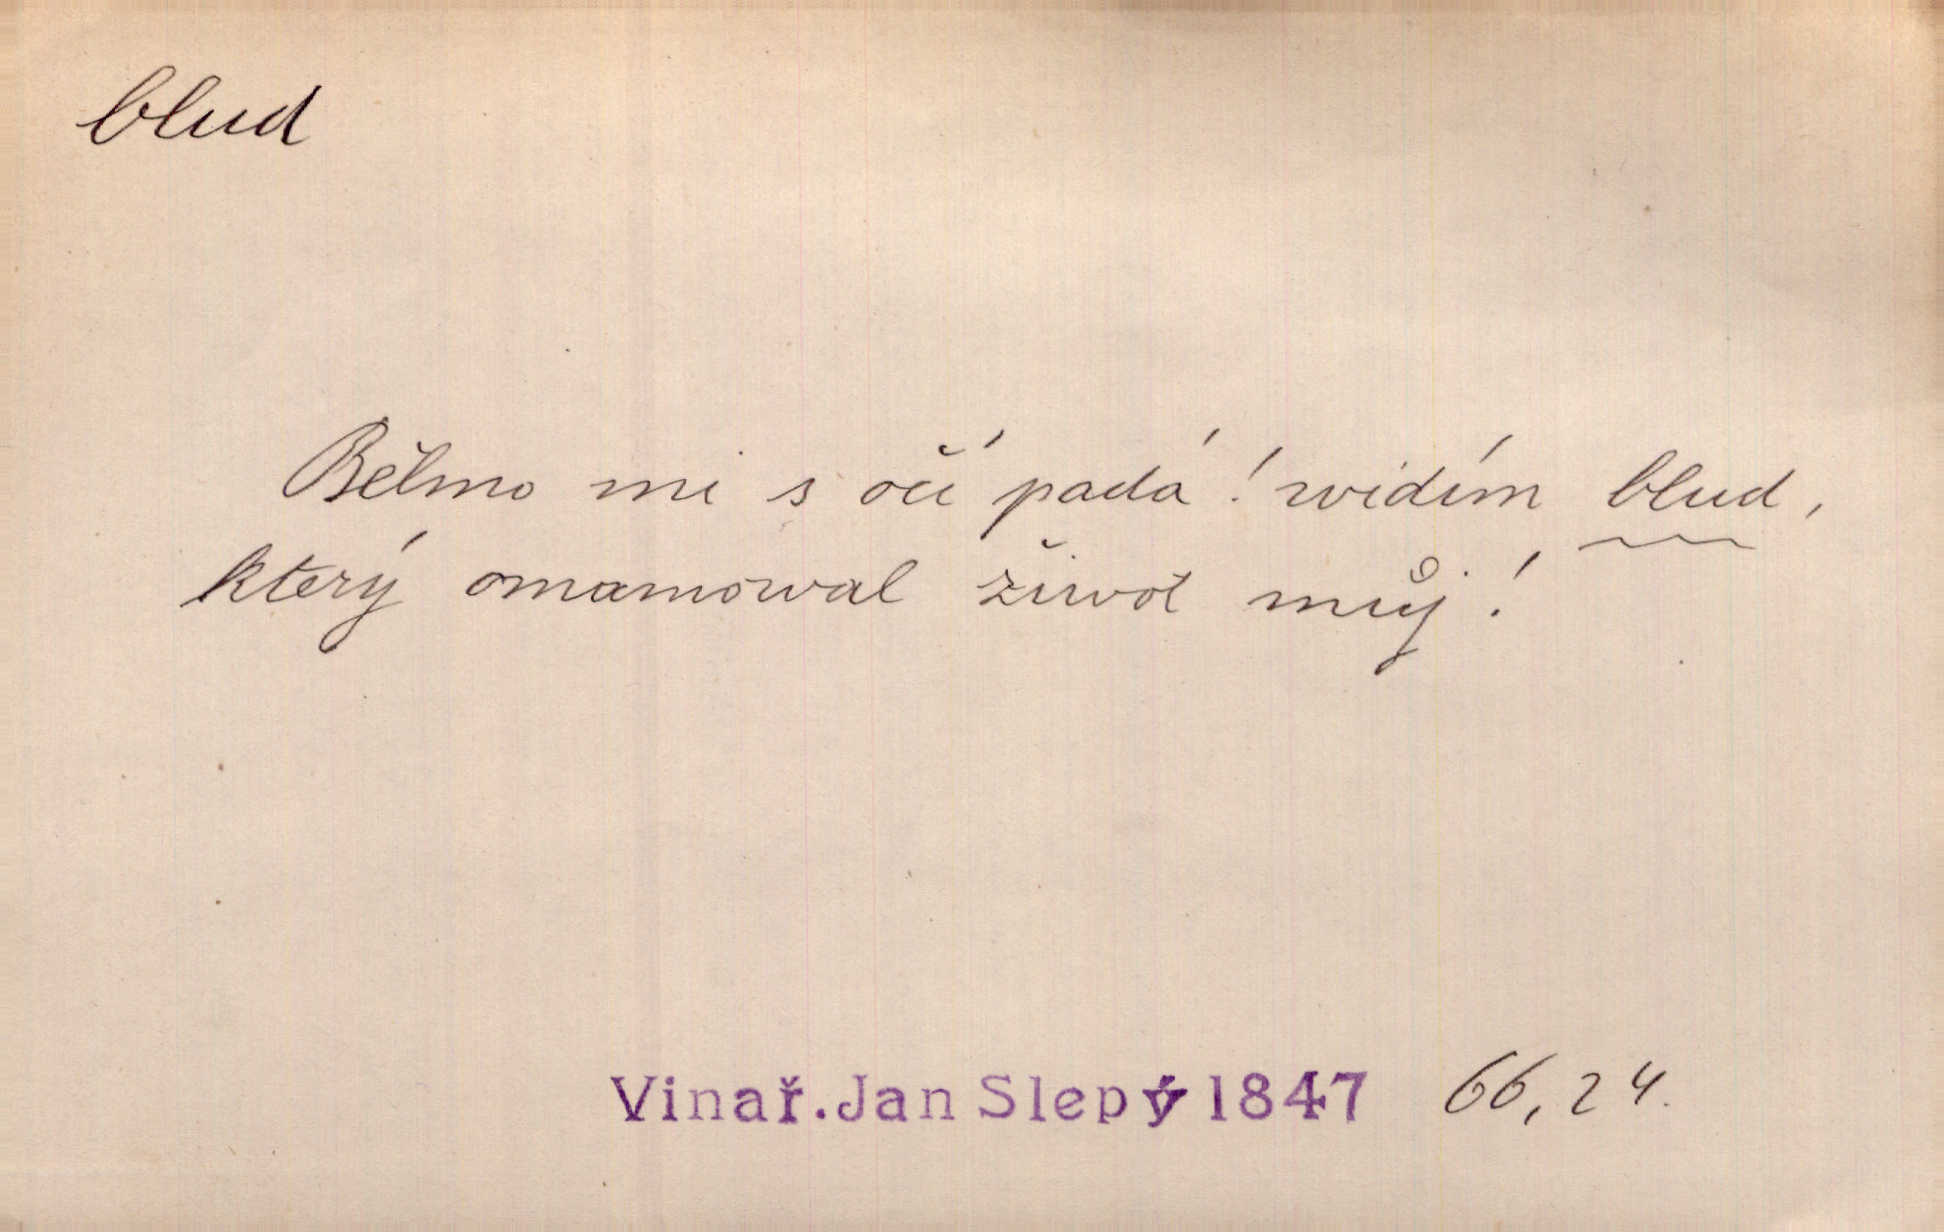 blud
Bělmo mi s očí padá! widím blud,
který omamowal žiwot můj!
Vinař. Jan Slepý 1847 66, 24.